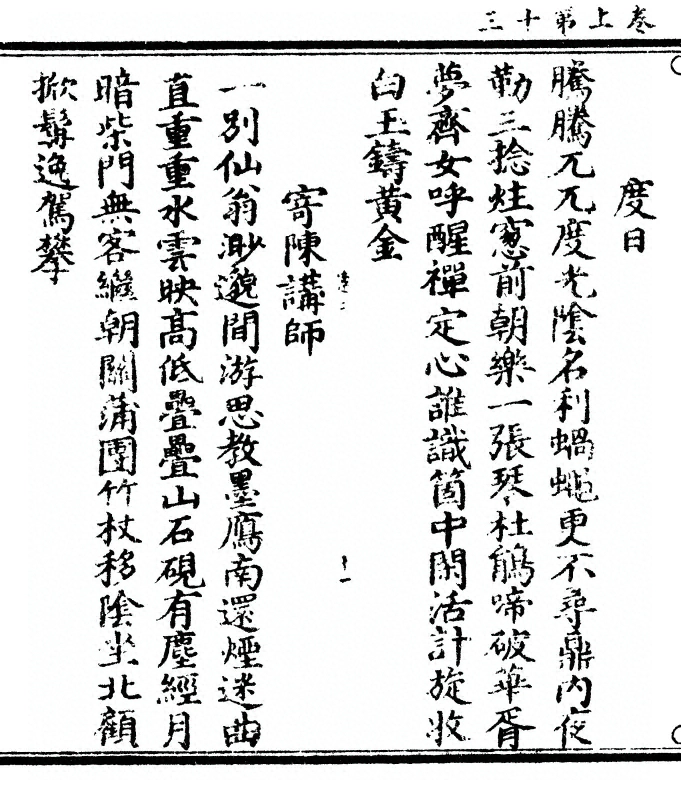 卷上第十三
度日
騰騰兀兀度光陰名利蝸蠅更不尋鼎內夜
勤三捻炷窻前朝樂一張琴杜鵑啼破華胥
夢齊女呼醒禪定心誰識箇中閑活計旋收
白玉鑄黃金
十一
寄陳講師
一別仙翁渺邈間游思教墨鴈南還煙迷曲
直重重水雲映高低疊疊山石硯有塵經月
暗柴門無客繼朝關蒲團竹杖移陰坐北顧
掀髯逸駕攀